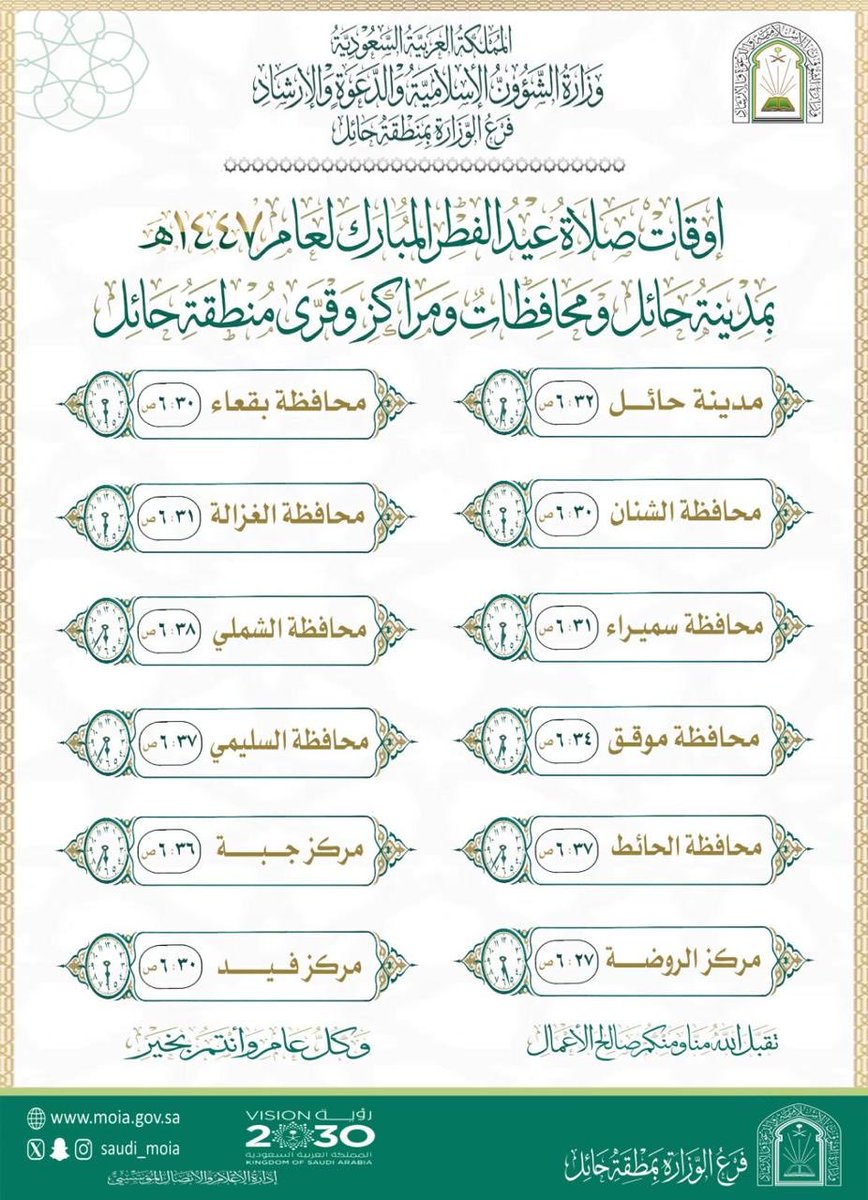 المملكة العربية السعودية
وزارة الشؤون الإسلامية والدعوة والإرشاد
فرع الوزارة بمنطقة حائل
اوقات صلاة عيد الفطر المبارك لعام ١٤٤٧هـ
بمدينة حائل ومحافظات ومراكز وقرى منطقة حائل
مدينة حائـــل ٦:٣٢ ص
محافظة بقعاء ٦:٣٠ ص
محافظة الشنان ٦:٣٠ ص
محافظة الغزالة ٦:٣١ ص
محافظة سميراء ٦:٣١ ص
محافظة الشملي ٦:٣٨ ص
محافظة موقق ٦:٣٤ ص
محافظة السليمي ٦:٣٧ ص
محافظة الحائط ٦:٣٧ ص
مركز جبـــة ٦:٣٦ ص
مركز الروضـــة ٦:٢٧ ص
مركز فيـــد ٦:٣٠ ص
تقبل الله منا ومنكم صالح الأعمال
وكل عام وأنتم بخير
فرع الوزارة بمنطقة حائل
رؤيـة VISION
2030
المملكة العربية السعودية
KINGDOM OF SAUDI ARABIA
www.moia.gov.sa
saudi_moia
إدارة الإعلام والاتصال المؤسسي